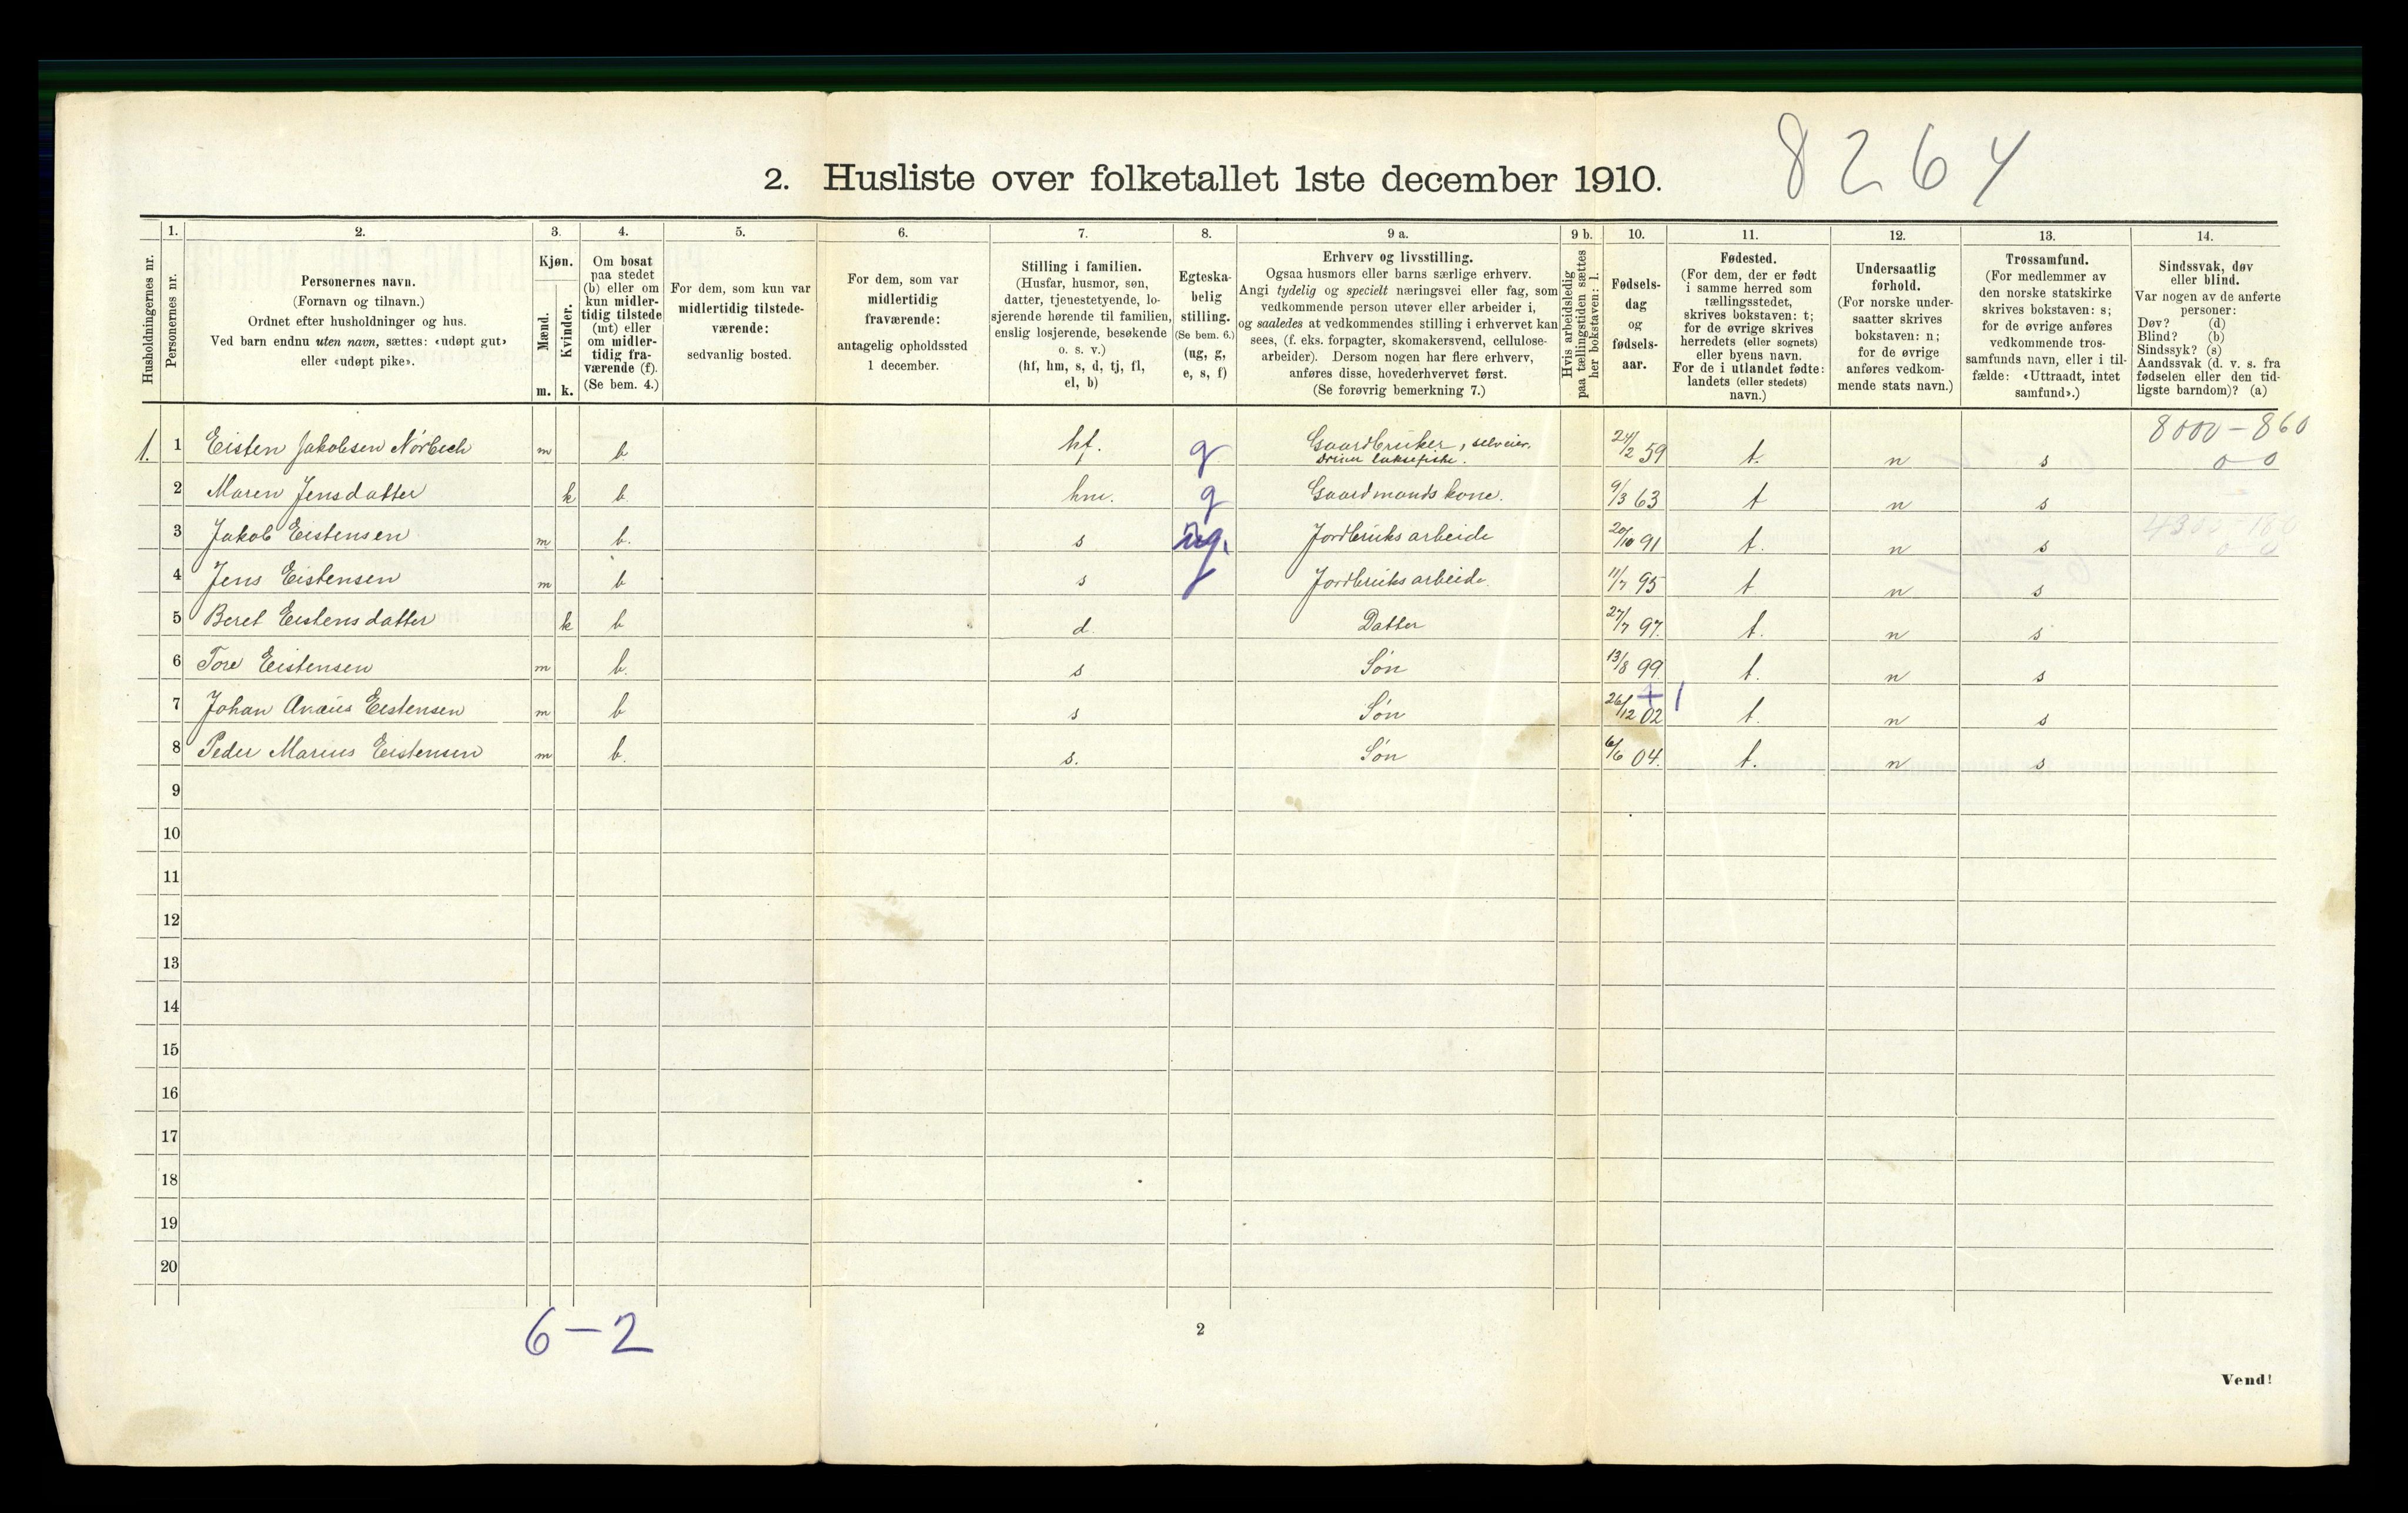 8264
2. Husliste over folketallet 1ste december 1910.
Husholdningernes nr.
1. Personernes nr.
2. Personernes navn.
(Fornavn og tilnavn.)
Ordnet efter husholdninger og hus.
Ved barn endnu uten navn, sættes: «udøpt gut»
eller «udøpt pike».
3. Kjøn.
Mænd. m.
Kvinder. k.
4. Om bosat
paa stedet
(b) eller om
kun midler-
tidig tilstede
(mt) eller
om midler-
tidig fra-
værende (f).
(Se bem. 4.)
5. For dem, som kun var
midlertidig tilstede-
værende:
sedvanlig bosted.
6. For dem, som var
midlertidig
fraværende:
antagelig opholdssted
1 december.
7. Stilling i familien.
(Husfar, husmor, søn,
datter, tjenestetyende, lo-
sjerende hørende til familien,
enslig losjerende, besøkende
o. s. v.)
(hf, hm, s, d, tj, fl,
el, b)
8. Egteska-
belig
stilling.
(Se bem. 6.)
(ug, g,
e, s, f)
9 a. Erhverv og livsstilling.
Ogsaa husmors eller barns særlige erhverv.
Angi tydelig og specielt næringsvei eller fag, som
vedkommende person utøver eller arbeider i,
og saaledes at vedkommendes stilling i erhvervet kan
sees, (f. eks. forpagter, skomakersvend, cellulose-
arbeider). Dersom nogen har flere erhverv,
anføres disse, hovederhvervet først.
(Se forøvrig bemerkning 7.)
9 b. Hvis arbeidsledig
paa tællingstiden sættes
her bokstaven: l.
10. Fødsels-
dag
og
fødsels-
aar.
11. Fødested.
(For dem, der er født
i samme herred som
tællingsstedet,
skrives bokstaven: t;
for de øvrige skrives
herredets (eller sognets)
eller byens navn.
For de i utlandet fødte:
landets (eller stedets)
navn.)
12. Undersaatlig
forhold.
(For norske under-
saatter skrives
bokstaven: n;
for de øvrige
anføres vedkom-
mende stats navn.)
13. Trossamfund.
(For medlemmer av
den norske statskirke
skrives bokstaven: s;
for de øvrige anføres
vedkommende tros-
samfunds navn, eller i til-
fælde: «Uttraadt, intet
samfund».)
14. Sindssvak, døv
eller blind.
Var nogen av de anførte
personer:
Døv? (d)
Blind? (b)
Sindssyk? (s)
Aandssvak (d. v. s. fra
fødselen eller den tid-
ligste barndom)? (a)
1. 1 Eisten Jakobsen Nörbech m b hf. g Gaardbruker, selveier. 24/2 59 t. n s 8000-860
driver laksefiske. 0 0
2 Maren Jensdatter k b. hm. g Gaardmandskone. 9/3 63 t n s
3 Jakob Eistensen m b. s ug. Jordbruksarbeide 20/10 91 t. n s
4 Jens Eistensen m b s Jordbruksarbeide 11/7 95 t n s
5 Beret Eistensdatter k b d. Datter 27/7 97. t. n s
6 Tore Eistensen m b. s Søn 13/8 99 t. n s
7 Johan Eistensen m b s Søn 26/12 02 t. n s
8 Peder Marius Eistensen m b. s. Søn 6/6 04. t. n s
9
10
11
12
13
14
15
16
17
18
19
20
6-2
2
Vend!